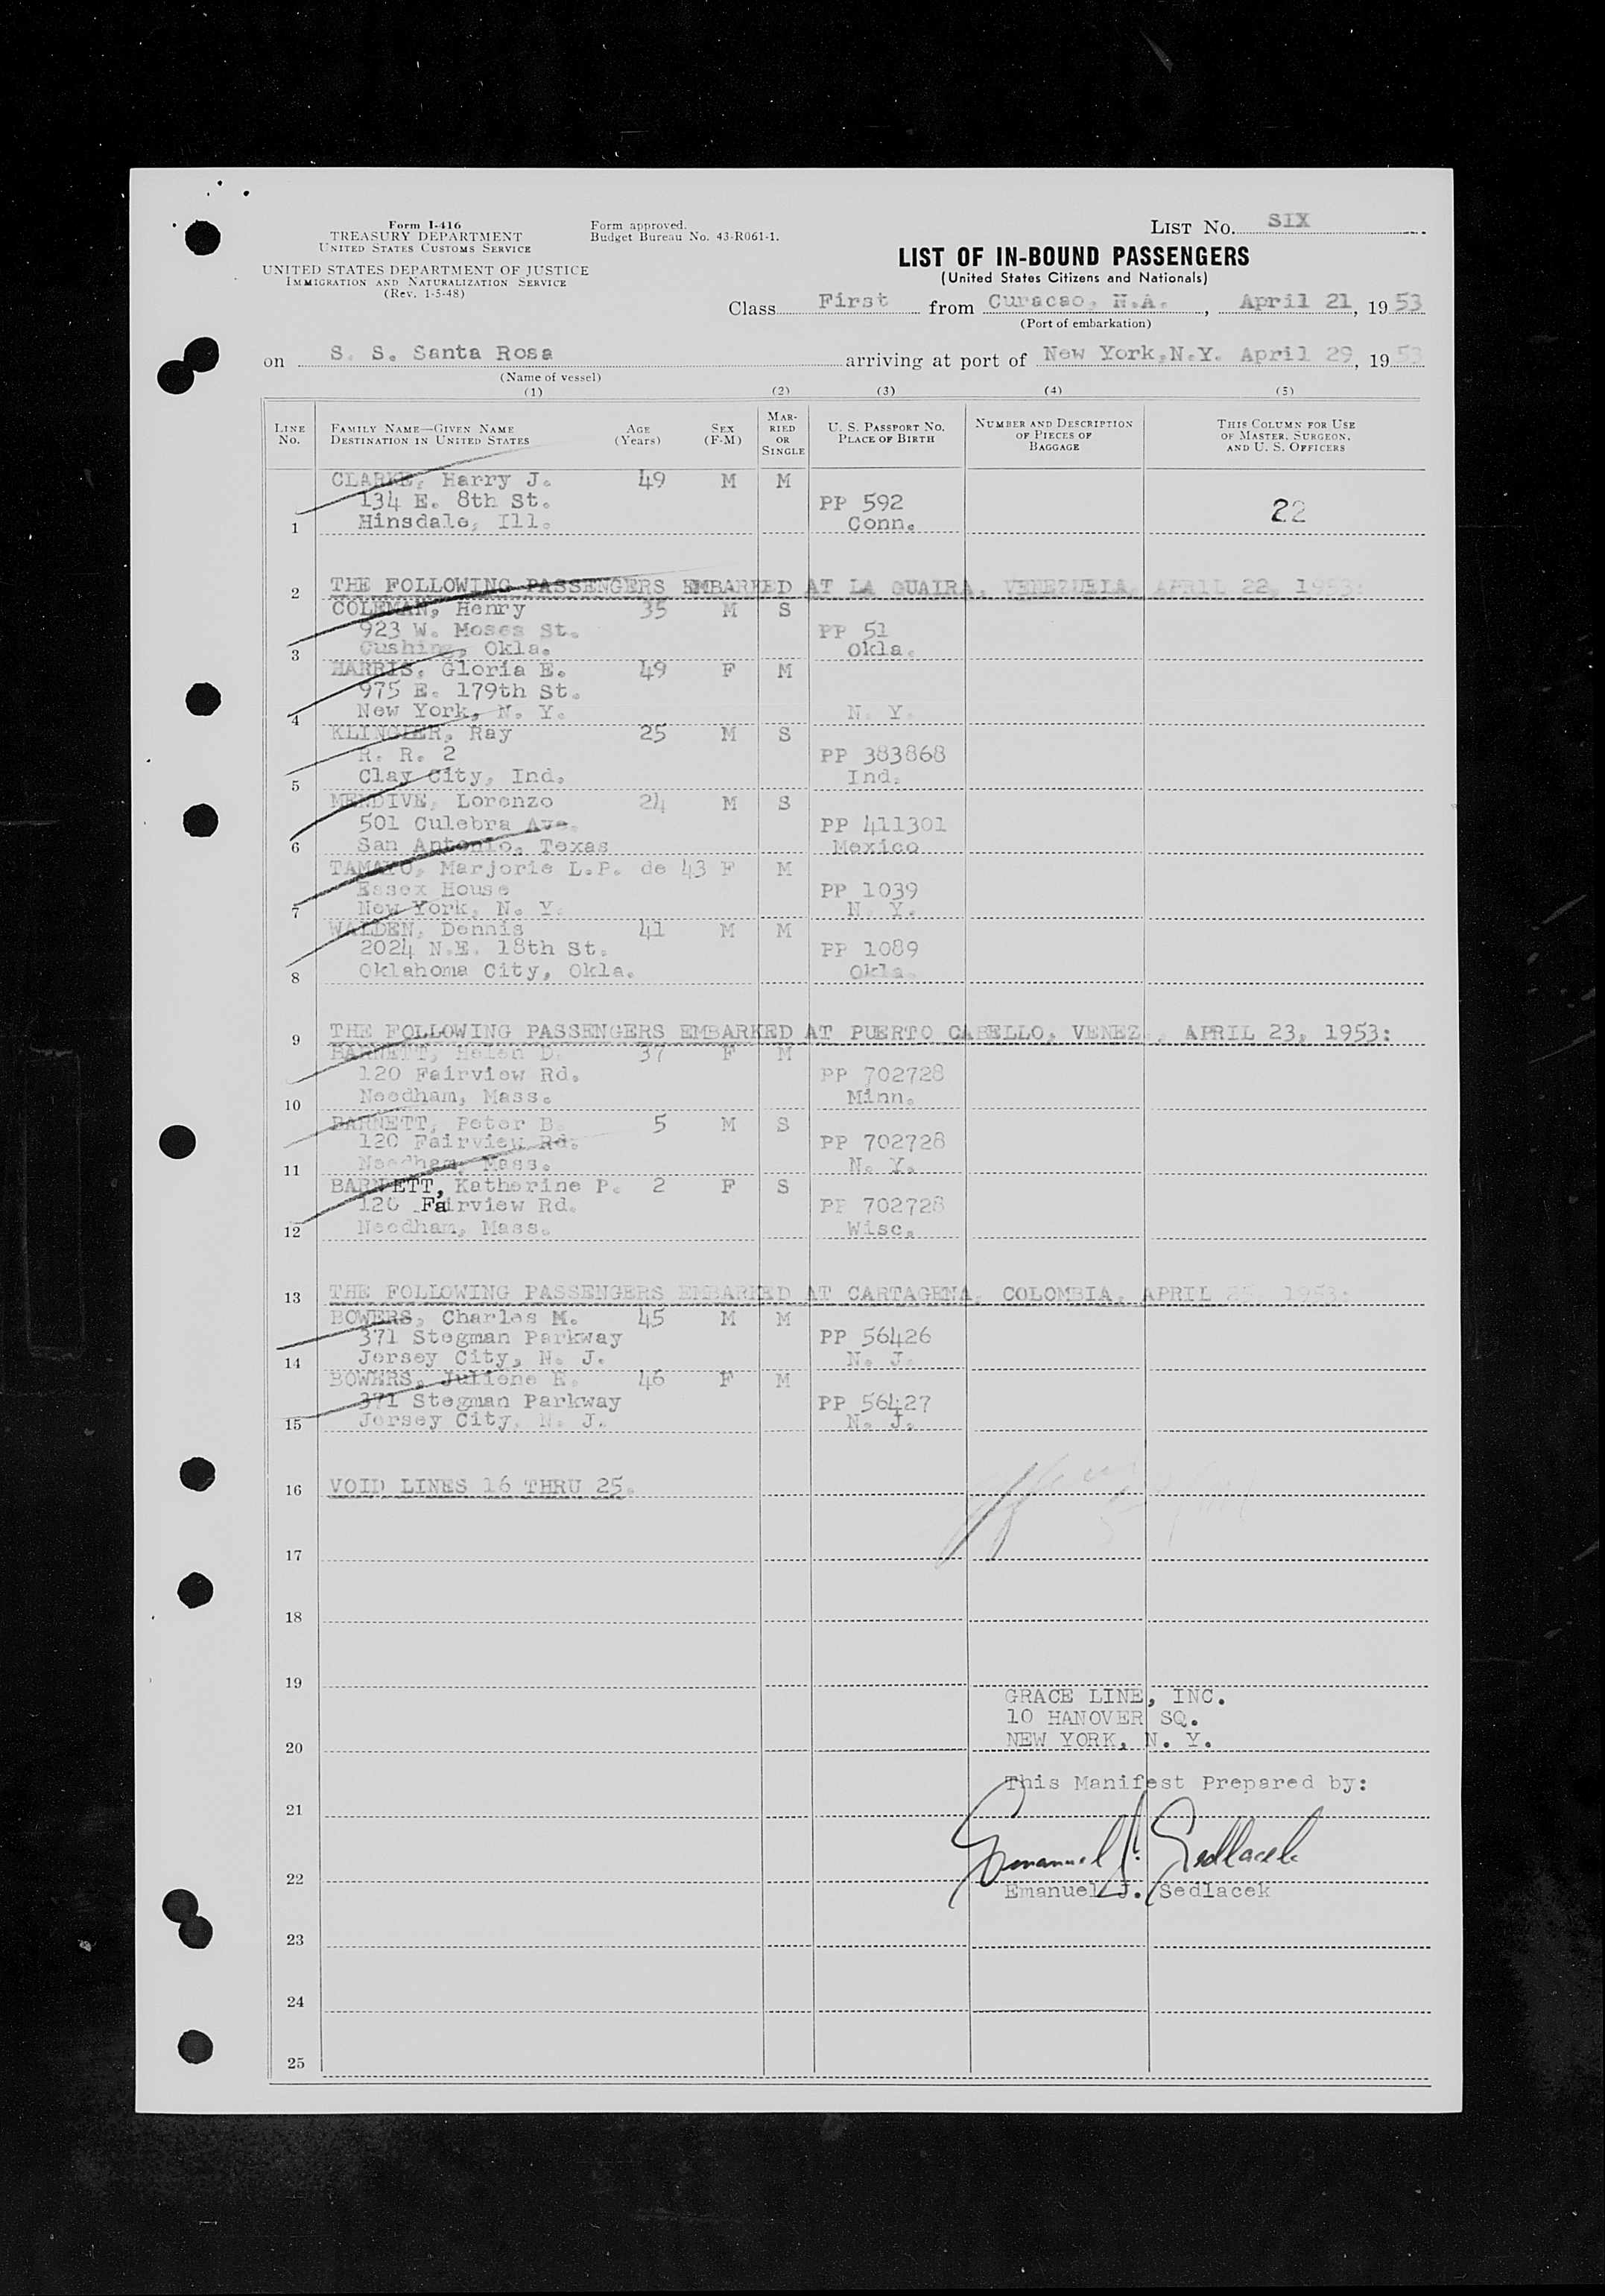 Form I-416
TREASURY DEPARTMENT
UNITED STATES CUSTOMS SERVICE
UNITED STATES DEPARTMENT OF JUSTICE
IMMIGRATION AND NATURALIZATION SERVICE
(Rev. 1-5-48)
Form approved.
Budget Bureau No. 43-R061-1.
LIST No. SIX
LIST OF IN-BOUND PASSENGERS
(United States Citizens and Nationals)
Class First from Curacao, N.A., April 21, 1953
(Port of embarkation)
on S. S. Santa Rosa arriving at port of New York, N.Y. April 29, 1953
(Name of vessel)
(1) (2) (3) (4) (5)
LINE No. FAMILY NAME—GIVEN NAME DESTINATION IN UNITED STATES AGE (Years) SEX (F-M) MARRIED OR SINGLE U. S. PASSPORT NO. PLACE OF BIRTH NUMBER AND DESCRIPTION OF PIECES OF BAGGAGE THIS COLUMN FOR USE OF MASTER, SURGEON, AND U. S. OFFICERS
CLARKE, Harry J. 49 M M
134 E. 8th St. PP 592 22
1 Hinsdale, Ill. Conn.
2 THE FOLLOWING PASSENGERS EMBARKED AT LA GUAIRA, VENEZUELA, APRIL 22, 1953:
COLEMAN, Henry 35 M S
923 W. Moses St. PP 51
3 Cushing, Okla. Okla.
HARRIS, Gloria E. 49 F M
975 E. 179th St.
4 New York, N. Y. N. Y.
KLINGLER, Ray 25 M S
R. R. 2 PP 383868
5 Clay City, Ind. Ind.
MENDIVE, Lorenzo 24 M S
501 Culebra Ave. PP 411301
6 San Antonio, Texas Mexico
TAMAYO, Marjorie L.P. de 43 F M
Essex House PP 1039
7 New York, N. Y. N. Y.
WALDEN, Dennis 41 M M
2024 N.E. 18th St. PP 1089
8 Oklahoma City, Okla. Okla.
9 THE FOLLOWING PASSENGERS EMBARKED AT PUERTO CABELLO, VENEZ., APRIL 23, 1953:
BARNETT, Helen D. 37 F M
120 Fairview Rd. PP 702728
10 Needham, Mass. Minn.
BARNETT, Peter B. 5 M S
120 Fairview Rd. PP 702728
11 Needham, Mass. N. Y.
BARNETT, Katherine P. 2 F S
120 Fairview Rd. PP 702728
12 Needham, Mass. Wisc.
13 THE FOLLOWING PASSENGERS EMBARKED AT CARTAGENA, COLOMBIA, APRIL 1953:
BOWERS, Charles M. 45 M M
371 Stegman Parkway PP 56426
14 Jersey City, N. J. N. J.
BOWERS, Juliene E. 46 F M
371 Stegman Parkway PP 56427
15 Jersey City, N. J. N. J.
16 VOID LINES 16 THRU 25.
17
18
19
GRACE LINE, INC.
10 HANOVER SQ.
20 NEW YORK, N. Y.
This Manifest Prepared by:
21
Emanuel J. Sedlacek
22
Emanuel J. Sedlacek
23
24
25